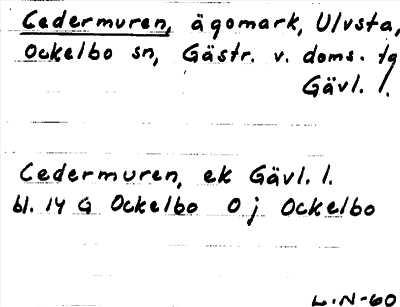 Cedermuren, ägomark, Ulvsta,
Ockelbo sn, Gästr. v. doms. tg
Gävl. l.
Cedermuren, ek Gävl. l.
bl. 14 G Ockelbo O j Ockelbo
L.N-60